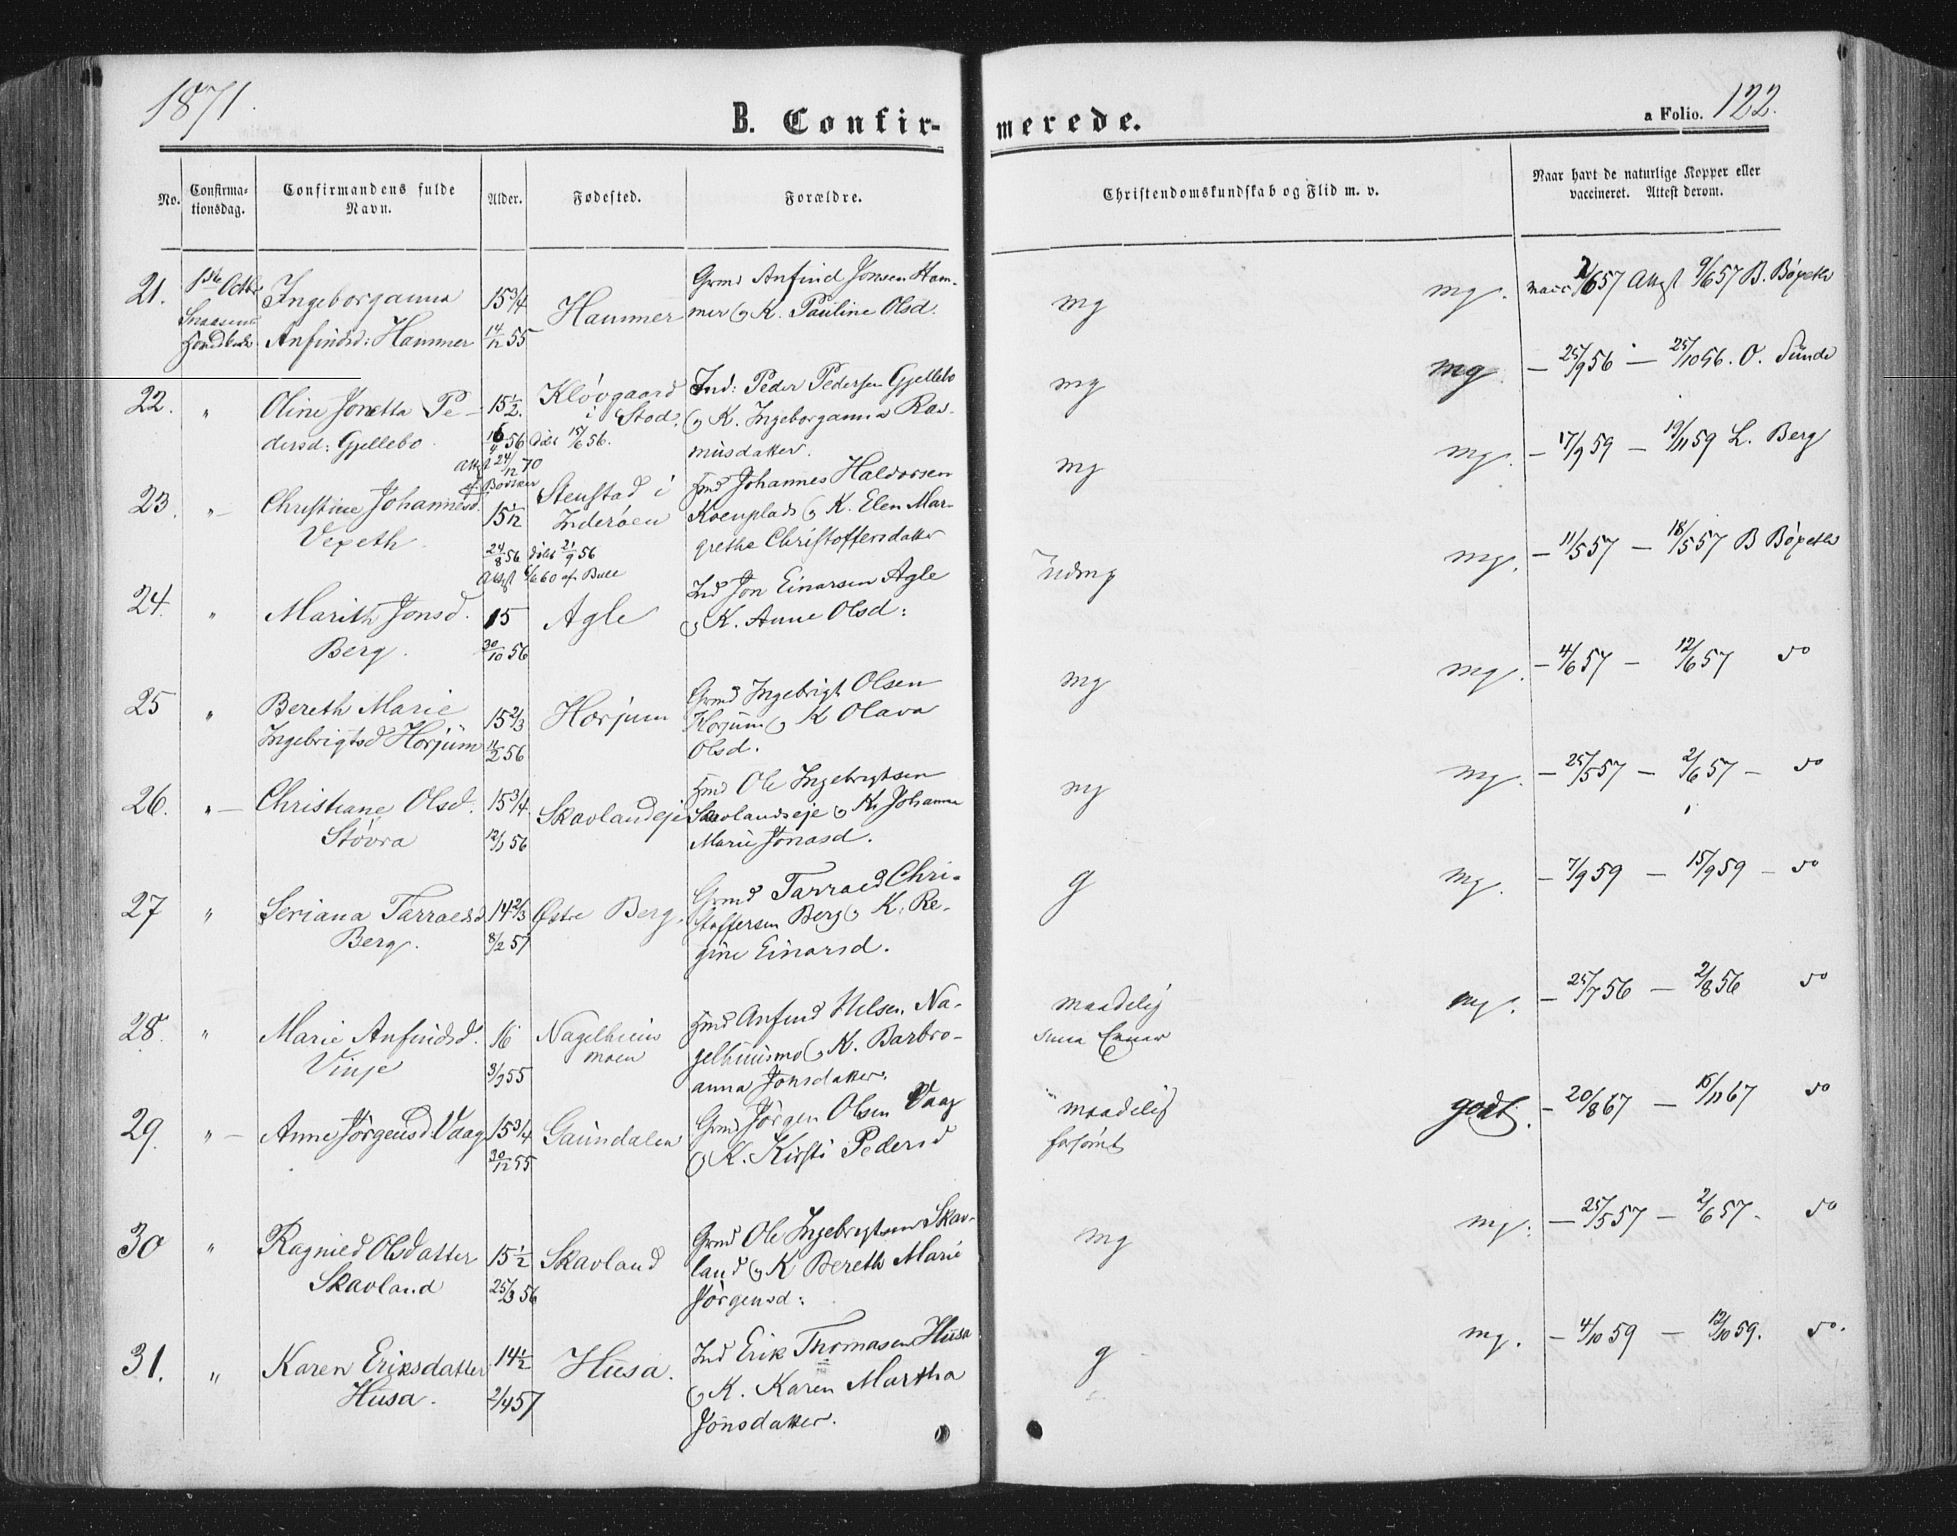 1871.
B. Confir-
merede.
a Folio. 122.
No.
Confirma-
tionsdag.
Confirmandens fulde
Navn.
Alder.
Fødested.
Forældre.
Christendomskundskab og Flid m. v.
Naar havt de naturlige Kopper eller
vaccineret. Attest derom.
21. 1ste Octbr Ingeborganna 15 3/4 Hammer Grmd Anfind Jonsen Ham-
Anfindsd: Hammer 14/12 55 mer & K. Pauline Olsd.
mg mg. vacc 1/6 57 Attest 9/6 57 B. Bøpeth
22. " Oline Jonetta Pe- 15 1/2. Kløvgaard Ind: Peder Pedersen Gjellebo
dersd: Gjellebo i Stod. & K. Ingeborganna Ras-
56 døbt 15/6 56. musdatter.
Attst 24/12 70
mg mg. - 25/9 56 - 25/10 56. O. Sunde
23. " Christine Johannesd. 15 1/12 Stenstad i Hmd Johannes Haldorsen
Vexeth Inderøen Koenplads & K. Elen Mar-
24/8 56 døbt 21/9 56 grethe Christoffersdatter
Attst 6/6 60 af Bull
mg mg. - 17/9 59 - 19/11 59 L. Berg
24. " Marith Jonsd. 15 Agle Ind Jon Einarsen Agle
Berg. 30/10 56 & K. Anne Olsd:
Udmg mg. - 11/5 57 - 18/5 57 B Bøpeth
25 " Bereth Marie 15 2/3 Horjum Grmd Ingebrigt Olsen
Ingebrigtsd Horjum 11/2 56 Horjum & K Olava
Olsd.
mg mg. - 4/6 57 - 12/6 57 do
26. " Christiane Olsd. 15 3/4. Skavlandeje Hmd Ole Ingebrigtsen
Støvra 12/1 56 Skavlandseje & K. Johanna
Marie Jonasd.
mg mg. - 25/5 57 - 2/6 57 - do
27 " Seriana Tarraldsd 14 2/3 Østre Berg. Grmd Tarrald Chri-
Berg. 8/2 57 stoffersen Berg & K. Re-
gine Einarsd.
g mg. - 7/9 59 - 15/9 59 - do
28. " Marie Anfindsd. 16 Nagelhuus Hmd Anfind Nilsen Na-
Vinje 3/9 55 moen gelhuusmo & K. Barbro-
anna Jonsdatter.
maadelig
mg. - 25/7 56 - 2/8 56 do
29. " Anne Jørgensd. Vaag 15 3/4 Gaundalen Grmd Jørgen Olsen Vaag
30/12 55 & K. Kirsti Pedersd
maadelig
forsømt
godt. - 20/8 67 - 15/11 67 do
30 " Ragnild Olsdatter 15 1/2 Skavland Grmd Ole Ingebrigtsen Skav-
Skavland 25/3 56 land & K Bereth Marie
Jørgensd:
mg mg: - 25/5 57 - 2/6 57 - do
31. " Karen Eriksdatter 14 1/2 Husa. Ind Erik Thomasen Husa
Husa. 2/4 57 & K. Karen Martha
Jonsdatter.
g mg. - 4/10 59 - 12/10 59. do.